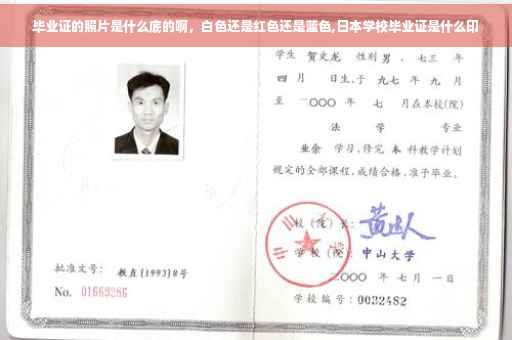 毕业证的照片是什么底的啊，白色还是红色还是蓝色,日本学校毕业证是什么印
学生 贺文龙 性别 男 、七三 年
四 月 日生,于 九七 年 九 月
至 二〇〇〇 年 七 月在本校(院)
法 学 专业
业余 学习,修完 本 科教学计划
规定的全部课程,成绩合格,准予毕业。
校（院）长:
学 校（院）: 中山大学
二〇〇〇 年 七 月 一 日
学校编号: 0032482
批准文号: 教直(1993)8号
No. 01669286